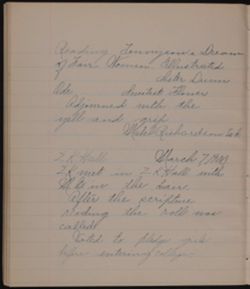 Reading Tennyson's Dream
of Fair Women Illustrated
Sister Dunn
Ode, Sweetest Flower
Adjourned with the
yell and grip
Mabel Richardson Sec
Z. K. Hall March 7, 
Z K met in Z. K Hall with
in the chair.
After the scripture
reading the roll was
called.
Voted to pledge girls
before entering college.